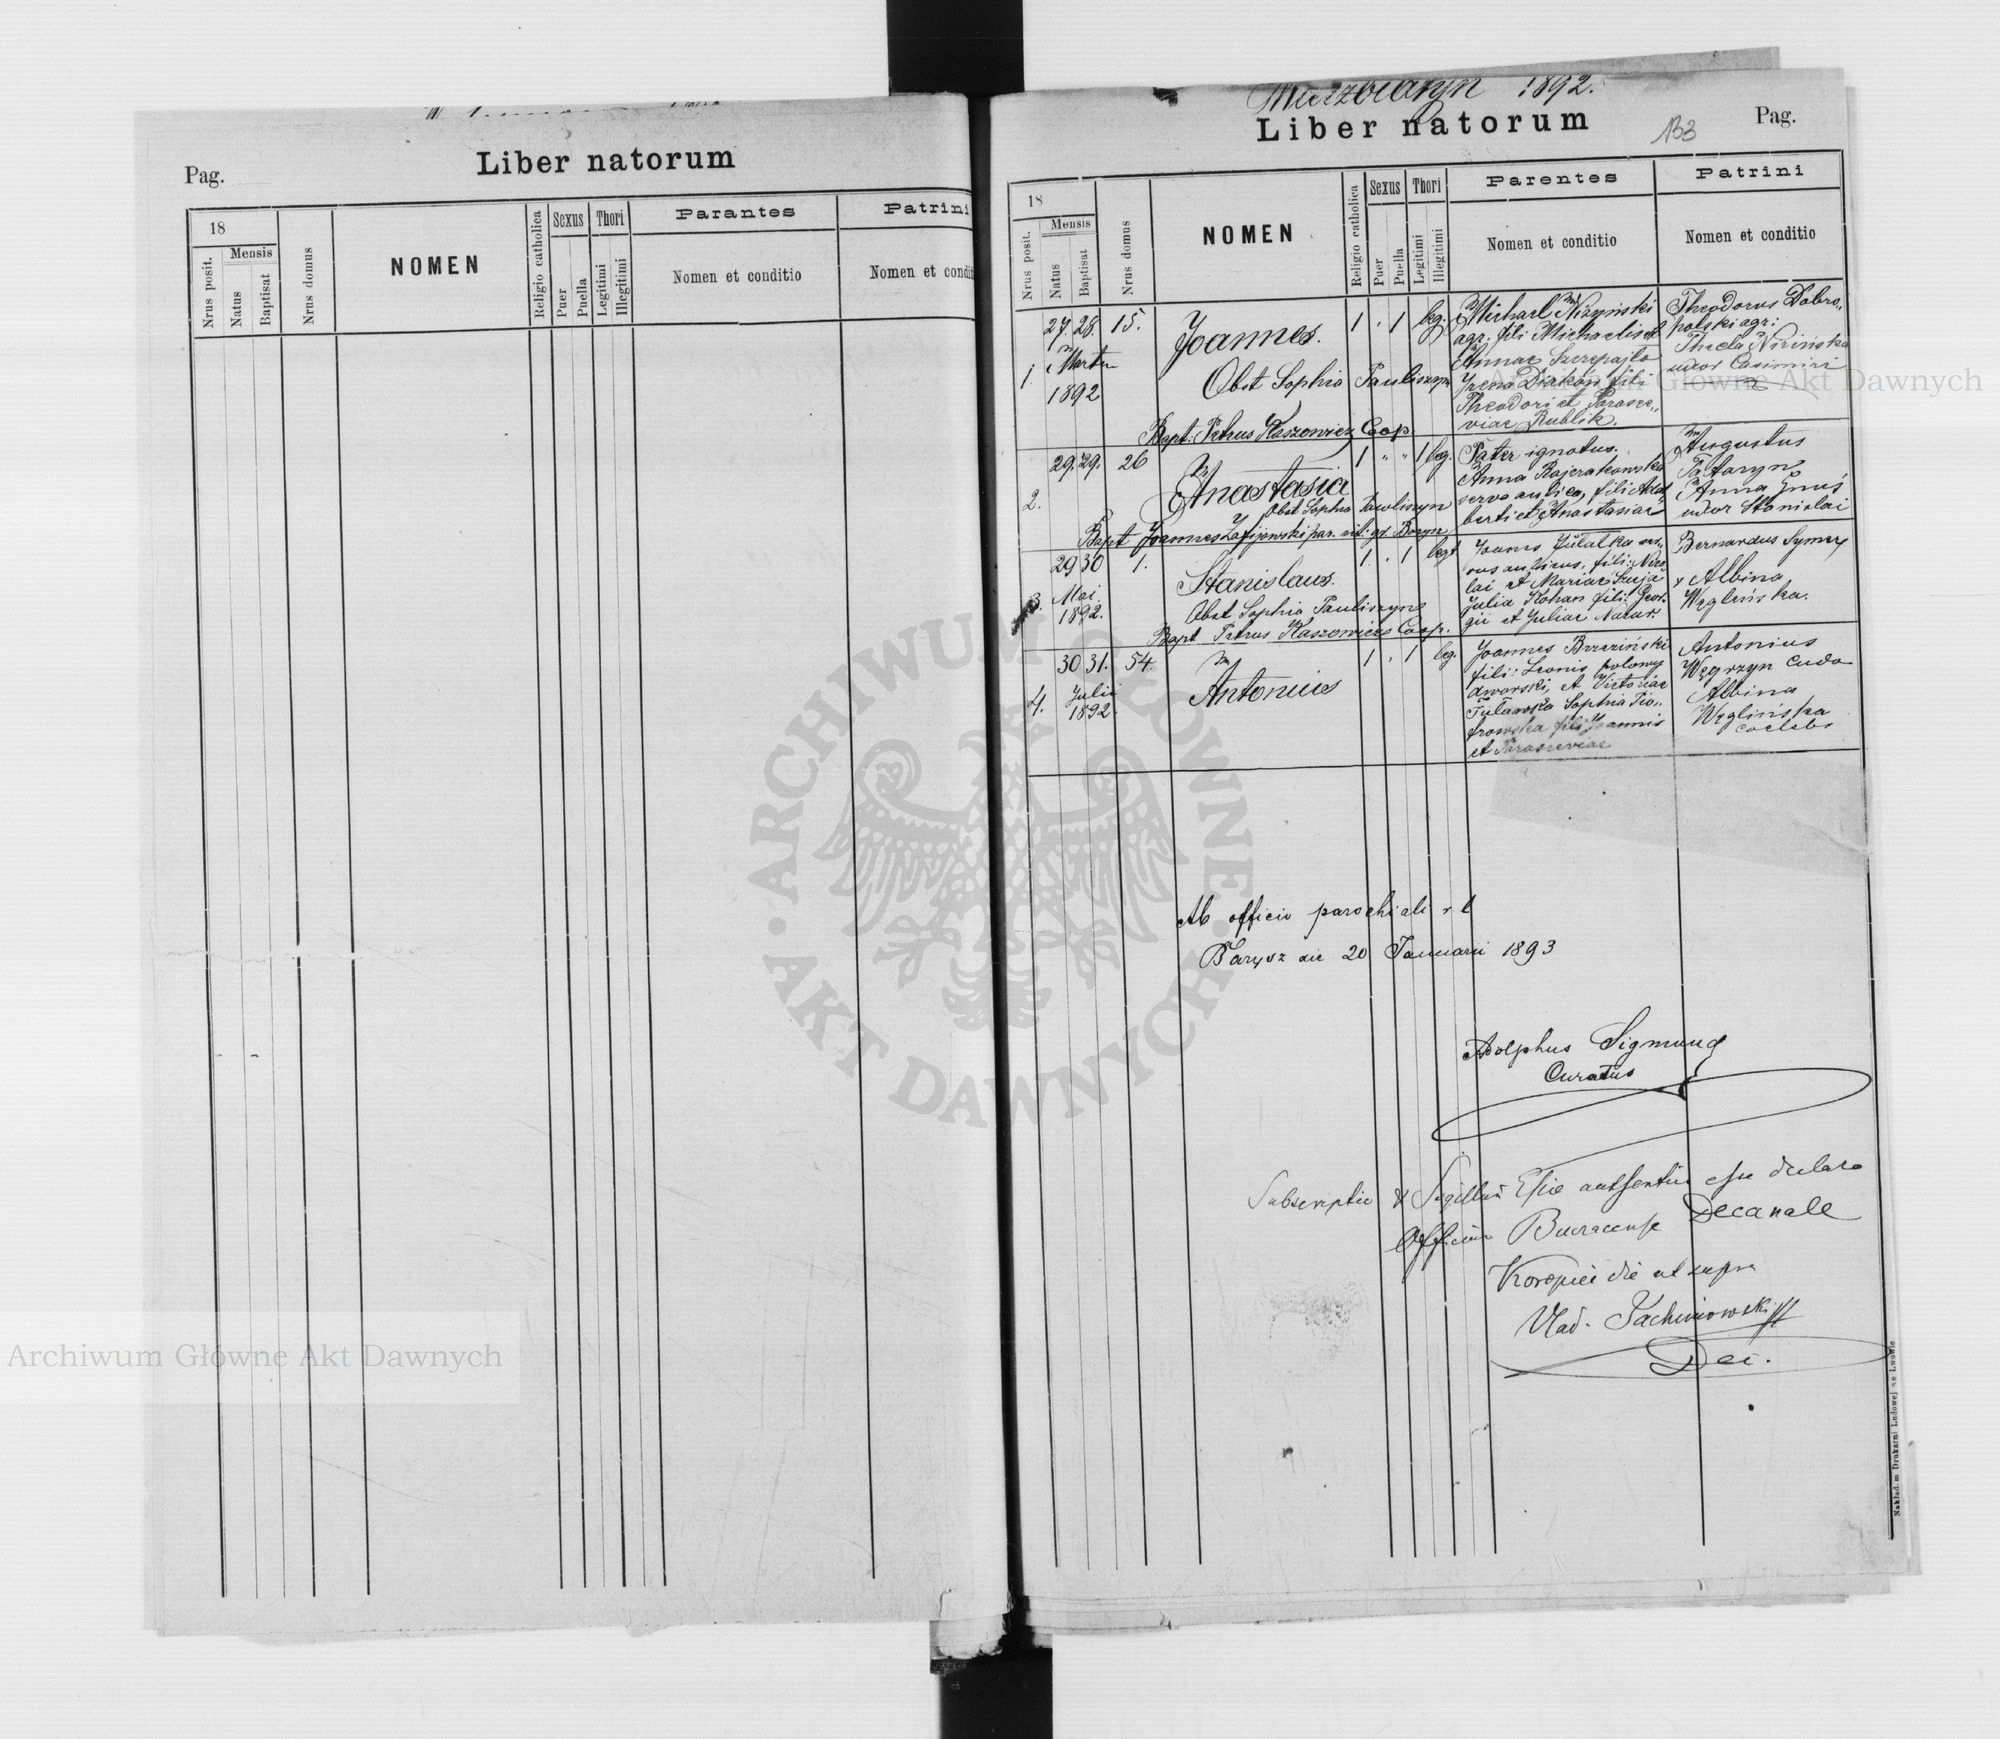 Pag.
Liber natorum
18
Nrus posit.
Mensis
Natus
Baptisat
Nrus domus
NOMEN
Religio catholica
Sexus
Puer
Puella
Thori
Legitimi
Illegitimi
Parantes
Nomen et conditio
Patrini
Nomen et condi
1892.
Liber natorum
133
Pag.
18
Nrus posit.
Mensis
Natus
Baptisat
Nrus domus
NOMEN
Religio catholica
Sexus
Puer
Puella
Thori
Legitimi
Illegitimi
Parentes
Nomen et conditio
Patrini
Nomen et conditio
1.
27. 28.
1892
15.
Joannes.
Obst Sophia Pauliszyn
Bapt. Petrus Kaszowicz Coop.
1 . 1 leg.
Michael Niżyński
agr. fili Michaelis et
Annae Szczepajlo
Irena Diakon fili
Theodori et Parasce„
viae Rublik.
Theodorus Dobro„
polski agr:
Thecla
uxor Casimiri
2.
29. 29.
26
Anastasia
Obst Sophia Pawliszyn
Bapt Joannes
1 „ „ 1 leg.
Pater ignotus.
Anna
serva aulica, fili Adal
berti et Anastasiae
Augustus
Tataryn
Anna
uxor Stanislai
3.
29 30
Mai
1892.
1.
Stanislaus.
Obst Sophia Pauliszyn
Bapt Petrus Kaszowicz Coop.
1. . 1 legt
Joannes
aulicus, fili: Nico
lai et Mariae
Julia Kohan fili: Geor.
gii et Juliae
Bernardus
Albina
Węglińska.
4.
30 31.
Julii
1892.
54
Antonius
1 . 1 leg.
Joannes Brzeziński
fili: Leonis polowy
dworski, et Victoriae
Sophia Pio„
trowska fili Joannis
et Parasceviae
Antonius
Węgrzyn
Albina
Węglińska
coelebs
Ab officio parochiali r. l
Barysz die 20 Januarii 1893
Adolphus Sigmund
Curatus
Subscriptio & Sigillum esse declaro
Officium Decanale
Koropiec die ut supra
Vlad.
Dec.
Nakładem Drukarni Ludowej we Lwowie
ARCHIWUM GŁÓWNE · AKT DAWNYCH ·
Archiwum Główne Akt Dawnych
Archiwum Główne Akt Dawnych